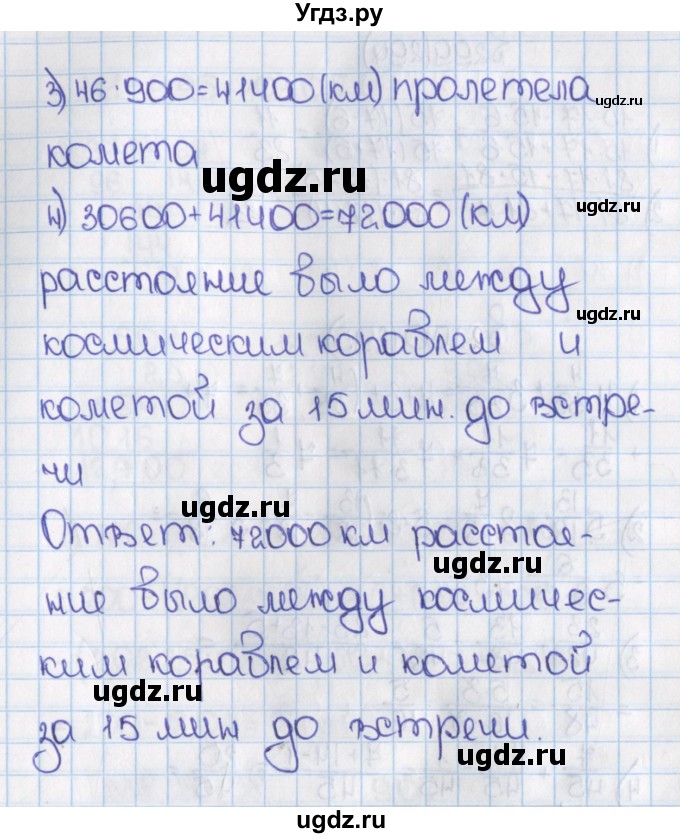 Угдз.ру
3) 46·900=41400(км) пролетела
ugdz.ru
комета
ugdz.ru
4) 30600+41400=72000(км)
ugdz.ru
расстояние было между
ugdz.ru
космическим кораблем и
кометой за 15 мин. до встре-
чи
ugdz.ru
Ответ: 72000 км расстоя-
ugdz.ru
ние было между космичес-
ким кораблем и кометой
ugdz.ru
за 15 мин до встречи.
ugdz.ru
ugdz.ru